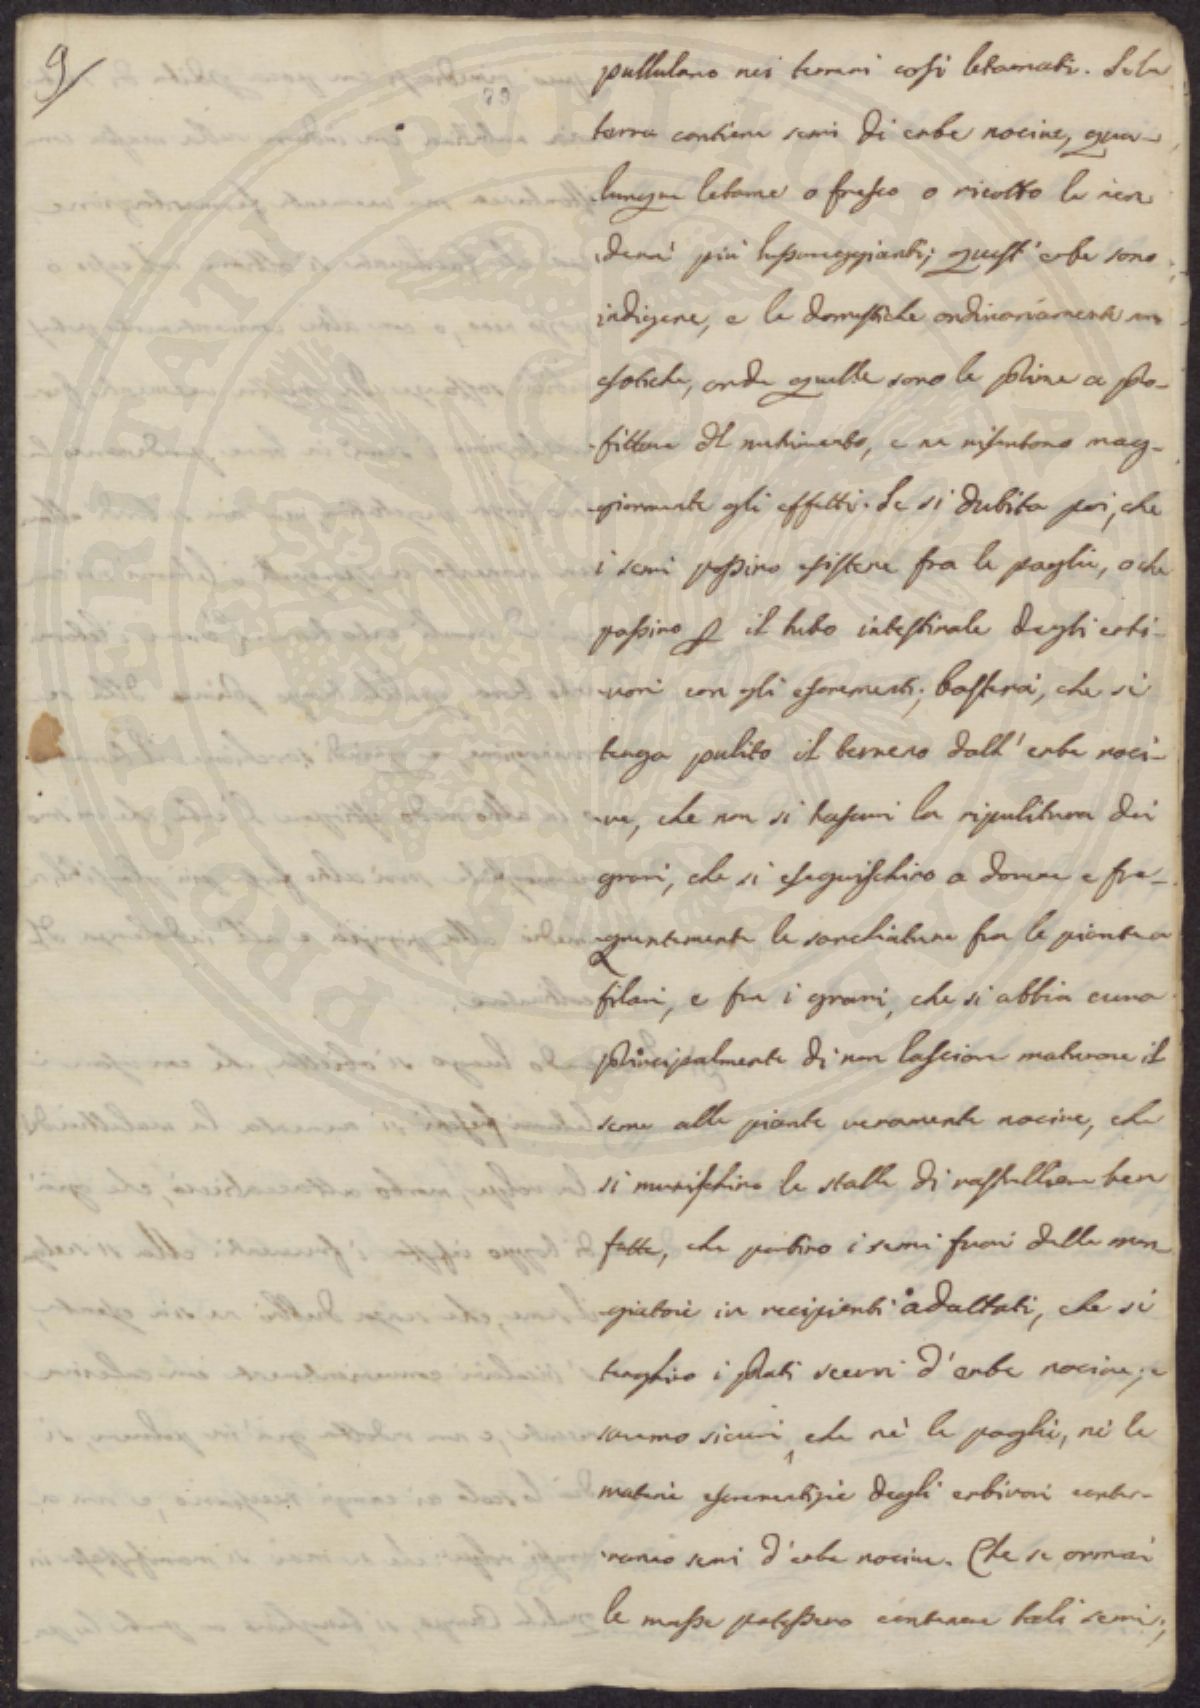 9
79
pullulano nei terreni così letamati. Se la
terra contiene semi di erbe nocive, qua-
lunque letame o fresco o ricotto le ren
derà più lussureggianti; quest' erbe sono
indigene, e le domestiche ordinariamente
esotiche, onde quelle sono le prime a pro-
fittare del nutrimento, e ne risentono mag-
giormente gli effetti. Se si dubita poi, che
i semi possino esistere fra le paglie, o che
passino per il tubo intestinale degli erbi-
vori con gli escrementi; basterà, che si
tenga pulito il terreno dall' erbe noci-
ve, che non si trascuri la ripulitura dei
grani, che si eseguischino a dovere e fre-
quentemente le sarchiature fra le piante a
filari, e fra i grani, che si abbia cura
principalmente di non lasciare maturare il
seme alle piante veramente nocive, che
si munischino le stalle di rastelliere ben
fatte, che portino i semi fuori delle man
giatoie in recipienti adattati, che si
tenghino i prati scevri d' erbe nocive; e
saremo sicuri che nè le paglie, nè le
materie escrementizie degli erbivori conter-
ranno semi d' erbe nocive. Che se ormai
le masse potessero contenere tali semi;
PROSPERITATI PUBLICAE AUGENDAE